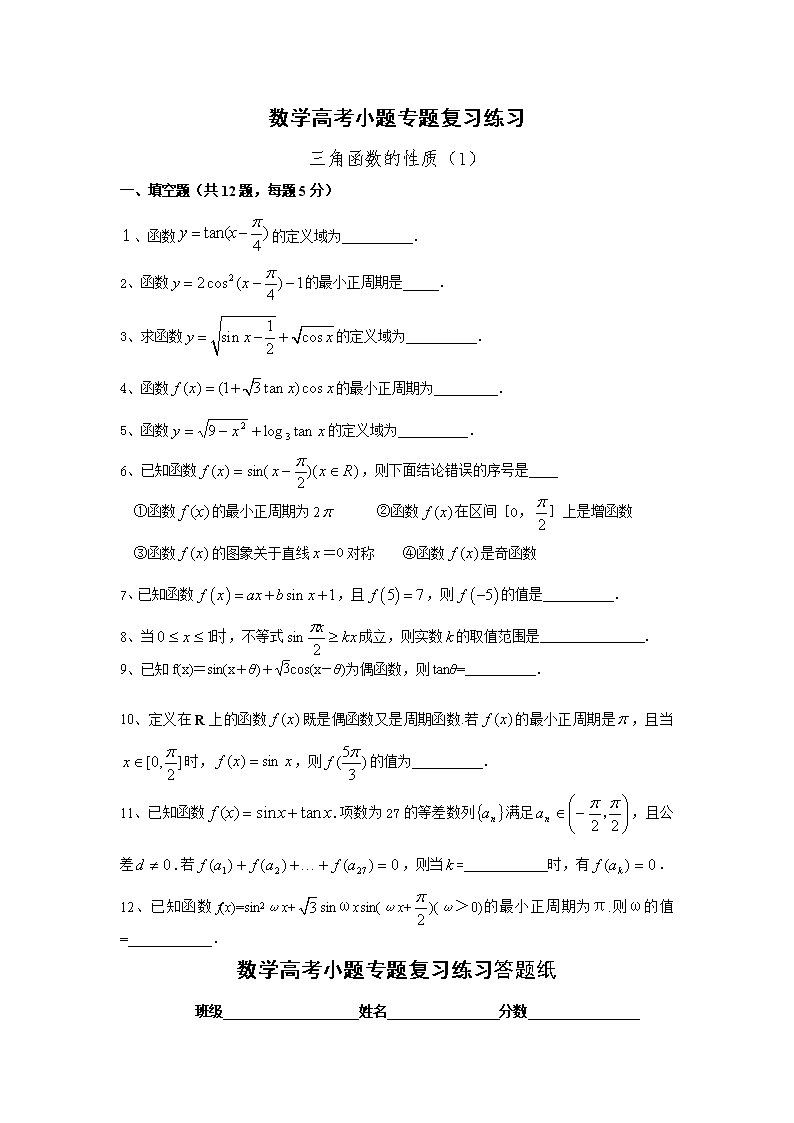 数学高考小题专题复习练习
三角函数的性质（1）
一、填空题（共12题，每题5分）
1、函数 y = tan(x − π/4) 的定义域为__________.
2、函数 y = 2cos²(x − π/4) − 1的最小正周期是_____.
3、求函数 y = √(sin x − 1/2) + √(cos x) 的定义域为__________.
4、函数 f(x) = (1+√3 tan x) cos x 的最小正周期为_________.
5、函数 y = √(9 − x²) + log₃ tan x 的定义域为__________.
6、已知函数 f(x) = sin( x − π/2)(x ∈ R)，则下面结论错误的序号是____
①函数 f(x) 的最小正周期为 2π ②函数 f(x) 在区间［0，π/2］上是增函数
③函数 f(x) 的图象关于直线 x＝0 对称 ④函数 f(x) 是奇函数
7、已知函数 f(x) = ax + b sin x + 1，且 f(5) = 7，则 f(−5) 的值是__________.
8、当 0 ≤ x ≤ 1时，不等式 sin πx/2 ≥ kx 成立，则实数 k 的取值范围是_______________.
9、已知 f(x)＝sin(x＋θ)＋√3cos(x－θ)为偶函数，则 tanθ=__________.
10、定义在 R 上的函数 f(x) 既是偶函数又是周期函数.若 f(x) 的最小正周期是 π，且当
x ∈ [0, π/2] 时，f(x) = sin x，则 f(5π/3) 的值为__________.
11、已知函数 f(x) = sin x + tan x. 项数为 27 的等差数列 {aₙ} 满足 aₙ ∈ (−π/2, π/2)，且公
差 d ≠ 0.若 f(a₁) + f(a₂) + … + f(a₂₇) = 0，则当 k =____________时，有 f(aₖ) = 0.
12、已知函数 f(x)=sin²ωx+√3 sinωxsin(ωx+π/2)(ω＞0)的最小正周期为π.则ω的值
=____________.
数学高考小题专题复习练习答题纸
班级_________________姓名______________分数______________